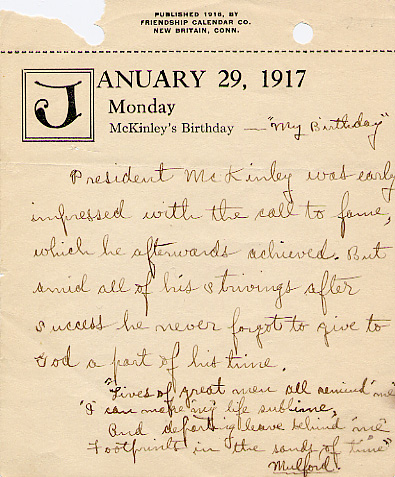 PUBLISHED 1916, BY
FRIENDSHIP CALENDAR CO.
NEW BRITAIN, CONN.
JANUARY 29, 1917
Monday
McKinley's Birthday — "My Birthday"
President McKinley was early
impressed with the call to fame,
which he afterwards achieved. But
amid all of his strivings after
success he never forgot to give to
God a part of his time.
"Lives of great men all remind 'me'
'I' can make 'my' life sublime,
And departing leave behind 'me'
Footprints in the sands of time"
Mulford.